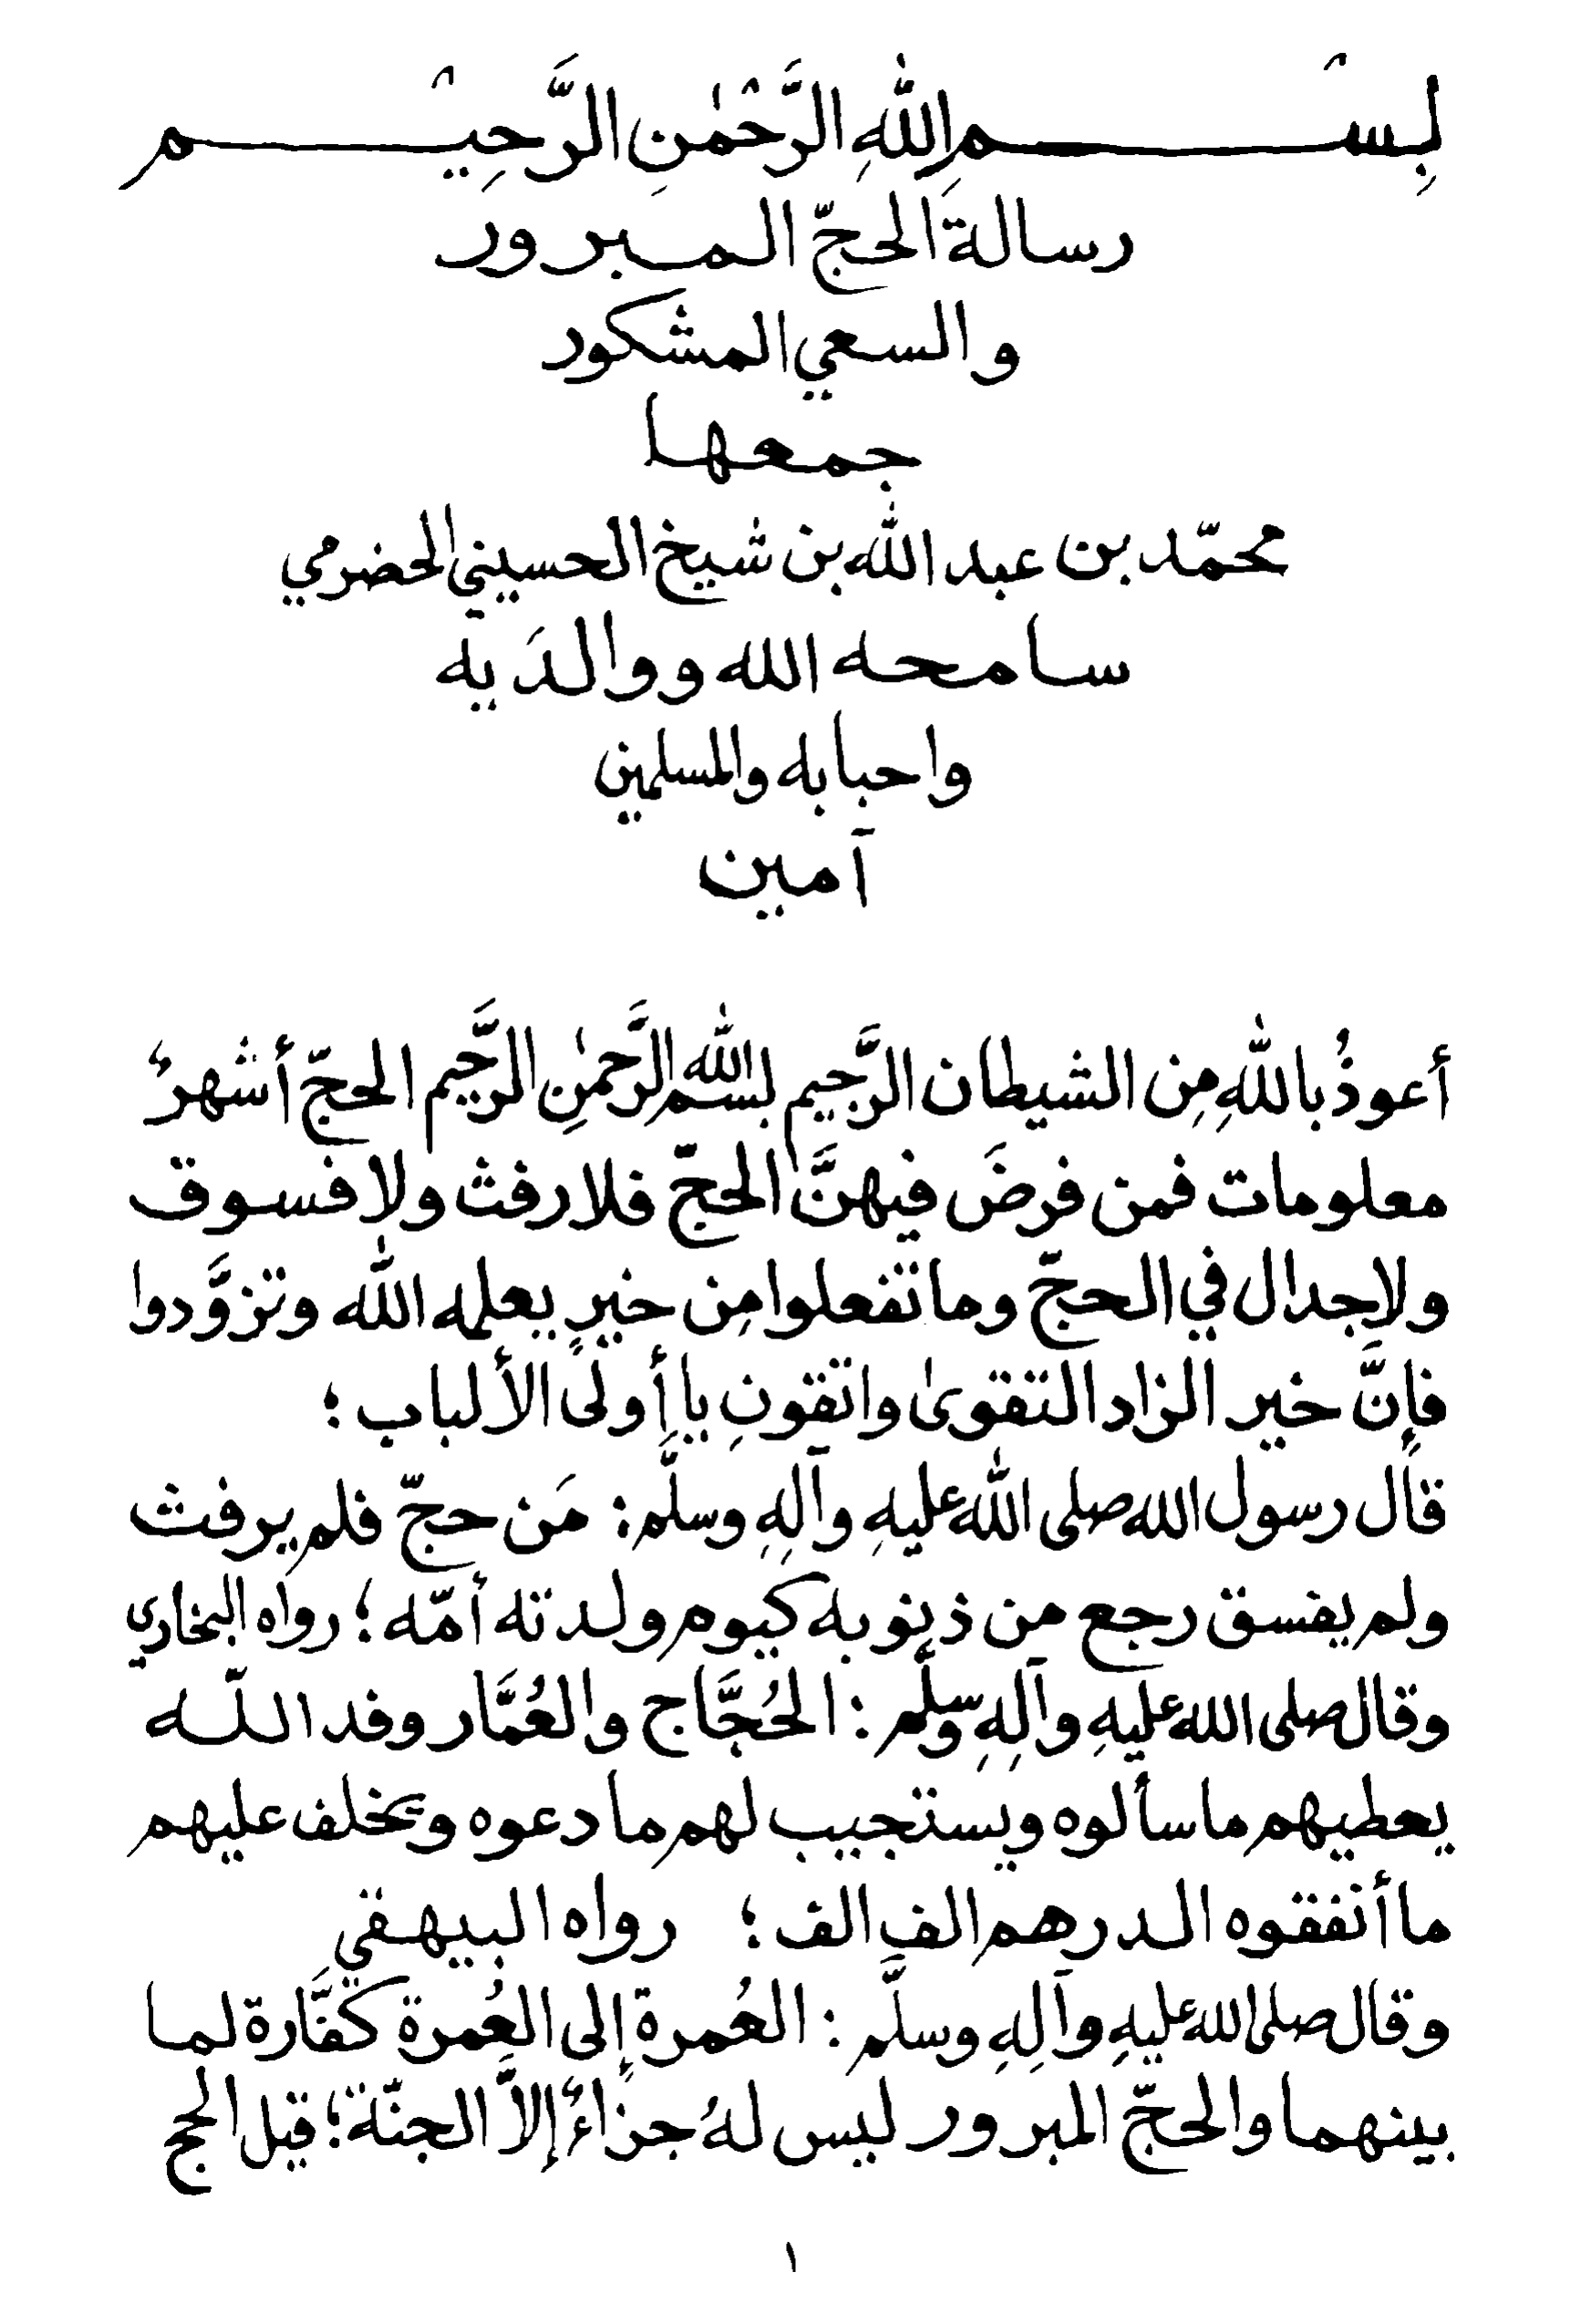 بِسْمِ اللهِ الرَّحْمٰنِ الرَّحِيْم
رسالة الحجّ المبرور
والسعي المشكور
جمعها
محمّد بن عبد الله بن شيخ الحسيني الحضرمي
سامحه الله ووالدَيه
واحبابه والمسلمين
آمين
أعوذُ باللهِ مِن الشيطان الرَّجيم بسم اللهِ الرَّحمٰنِ الرَّحيم الحجّ أشهرٌ
معلومات فمن فرضَ فيهنَّ الحجّ فلا رفث ولا فسوق
ولا جدال في الحجّ وما تفعلوا مِن خيرٍ يعلمه الله وتزوَّدوا
فإنَّ خير الزاد التقوىٰ واتقونِ يا أُولى الألباب ؛
قال رسول الله صلى الله عليهِ وآلِهِ وسلَّم : مَن حجّ فلم يرفث
ولم يفسق رجع من ذنوبه كيوم ولدته أمّه ؛ رواه البخاري
وقال صلى الله عليهِ وآلِهِ وسلَّم : الحُجَّاج والعُمَّار وفد اللّه
يعطيهم ما سألوه ويستجيب لهم ما دعوه ويخلف عليهم
ما أنفقوه الدرهم الف الف ؛ رواه البيهقي
وقال صلى الله عليهِ وآلِهِ وسلَّم : العُمرة إلى العُمرة كفَّارة لما
بينهما والحجّ المبرور ليس لهُ جزاءٌ إلاَّ الجنّة ؛ قيل الحج
١